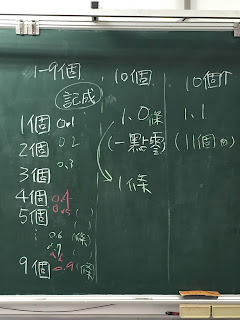 1-9個
記成
1個 0.1
2個 0.2
3個 0.3
4個 0.4
5個 0.5 ( )
⋮ 0.6 (條)
0.7
9個 0.9 (條)
10個
1.0條
(一點零)
1條
10個↑
1.1
(11個的)